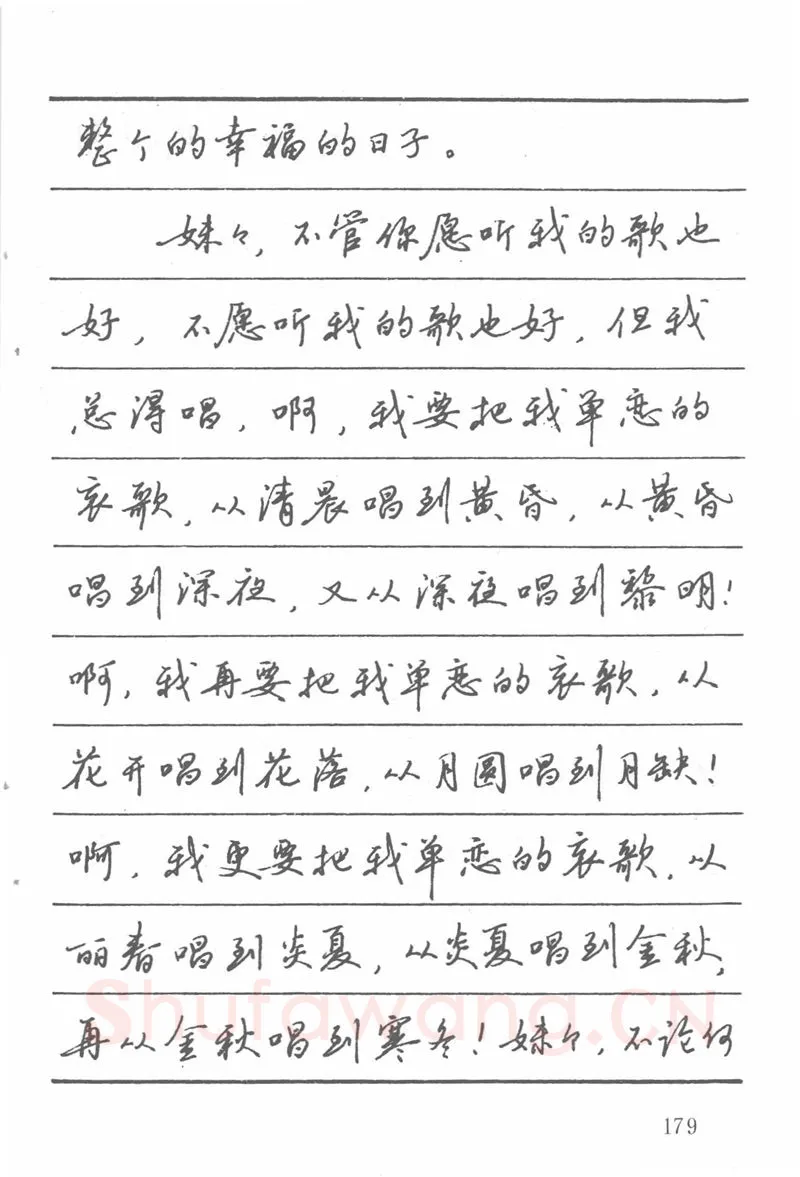 整个的幸福的日子。
妹々，不管你愿听我的歌也
好，不愿听我的歌也好，但我
总得唱，啊，我要把我单恋的
哀歌，从清晨唱到黄昏，从黄昏
唱到深夜，又从深夜唱到黎明！
啊，我再要把我单恋的哀歌，从
花开唱到花落，从月圆唱到月缺！
啊，我更要把我单恋的哀歌，从
丽春唱到炎夏，从炎夏唱到金秋，
再从金秋唱到寒冬！妹々，不论何
Shufawang.CN
179